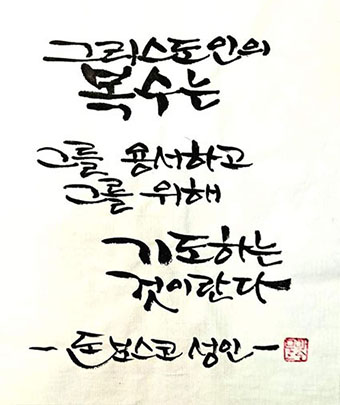 그리스도인의
복수는
그를 용서하고
그를 위해
기도하는
것이란다
- 돈보스코 성인 -